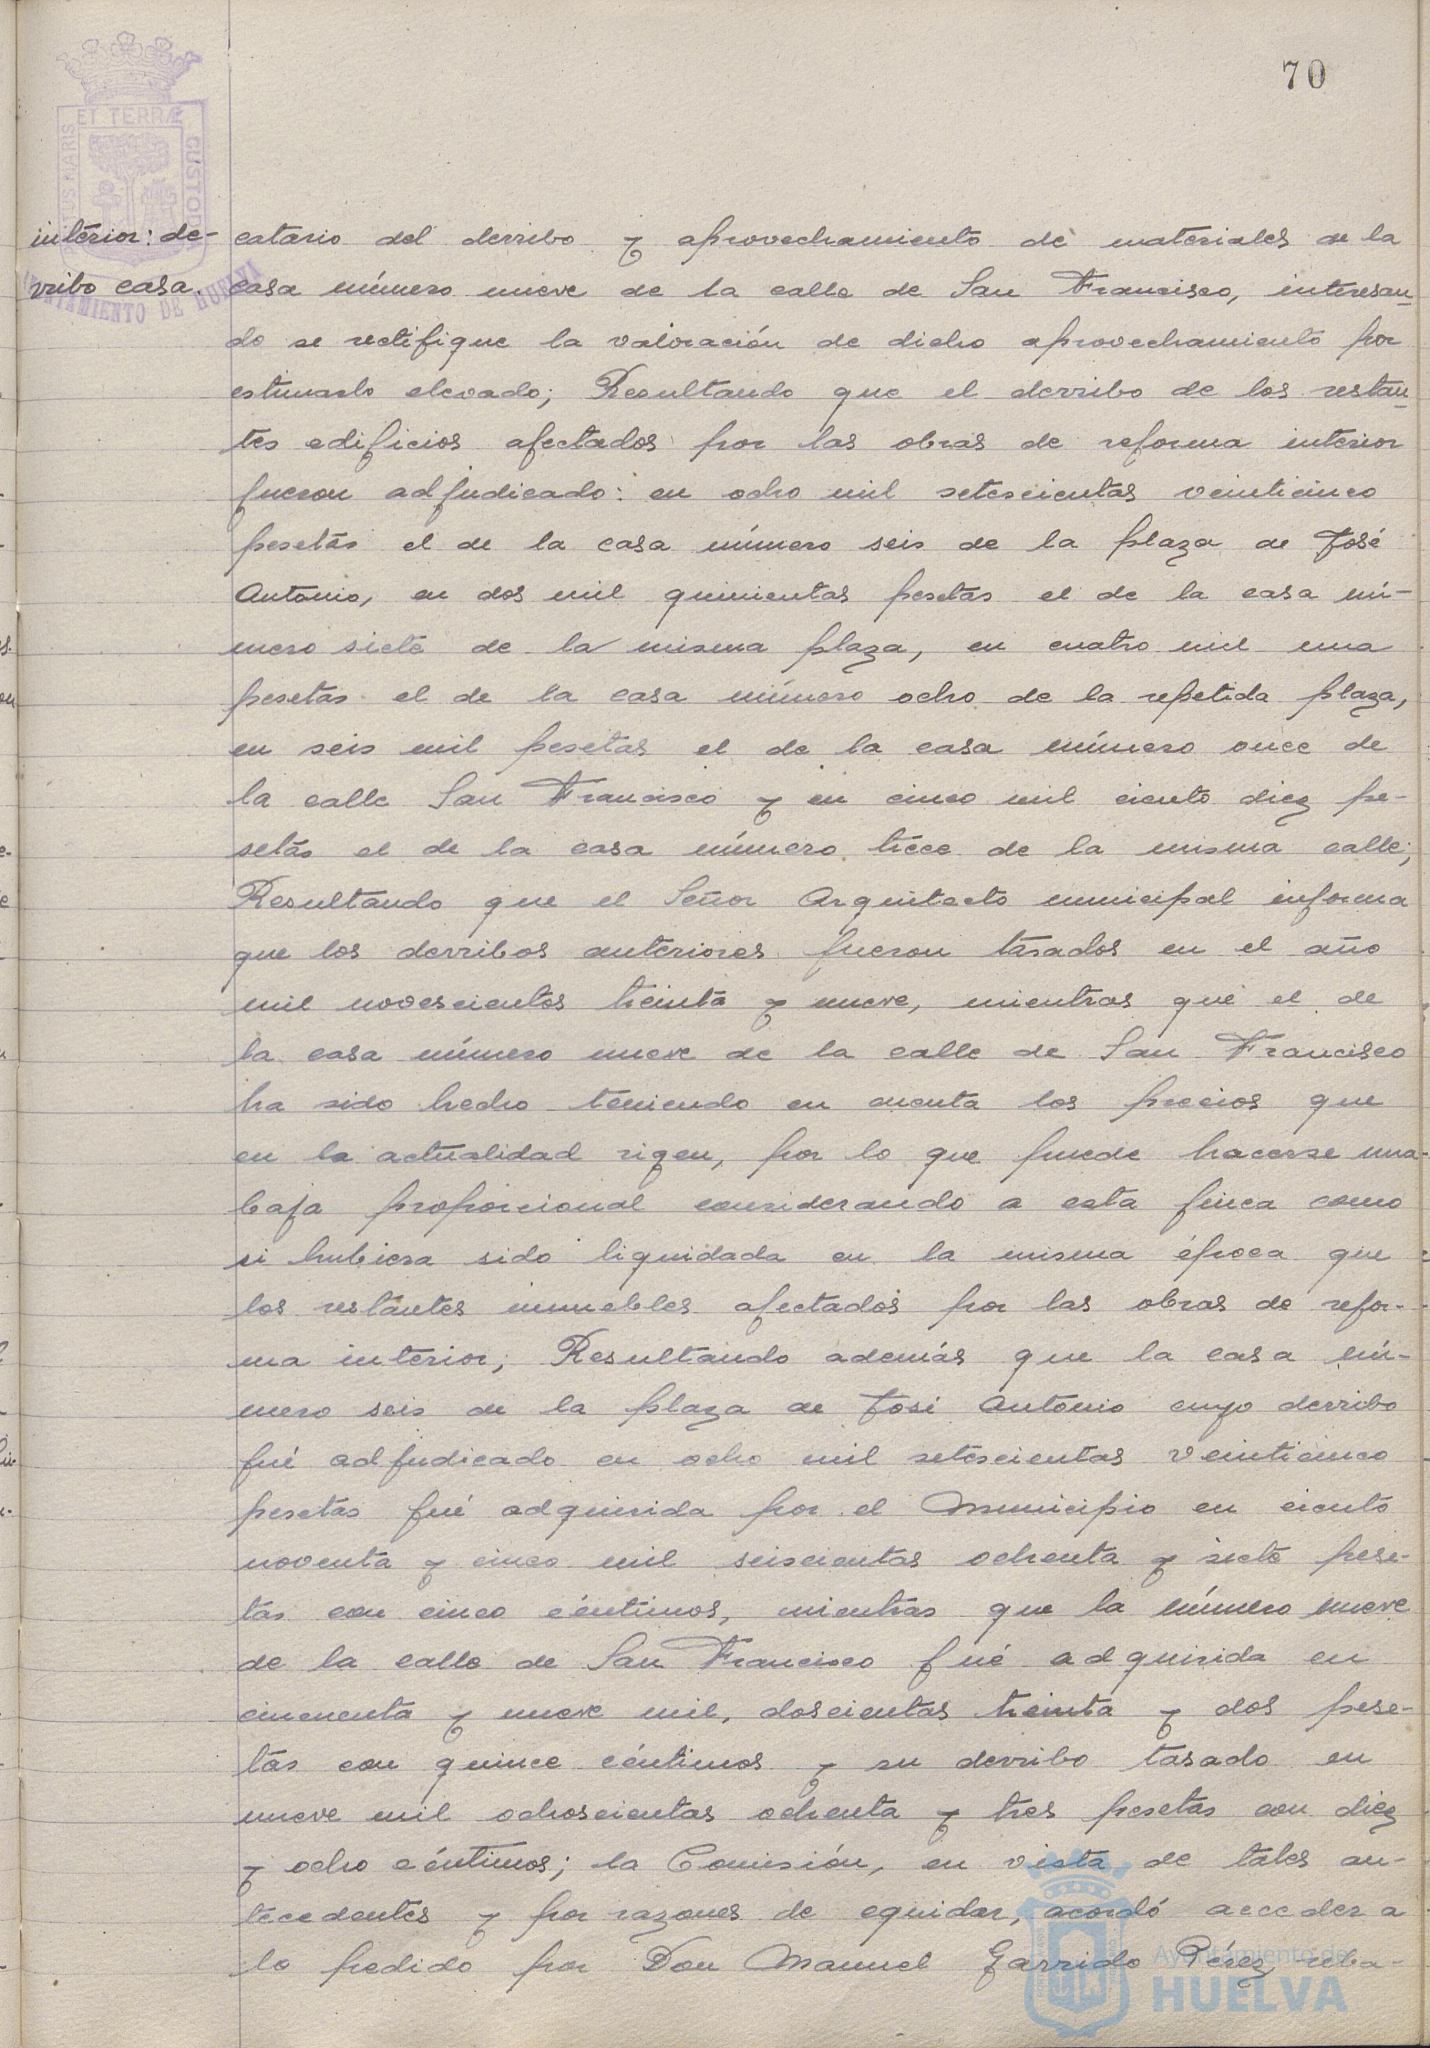 70
PORTUS MARIS ET TERRÆ CUSTODIA
AYUNTAMIENTO DE HUELVA
interior: de-
rribo casa.
catario del derribo y aprovechamiento de materiales de la
casa número nueve de la calle de San Francisco, interesan-
do se rectifique la valoración de dicho aprovechamiento por
estimarlo elevado; Resultando que el derribo de los restan-
tes edificios afectados por las obras de reforma interior
fueron adjudicado: en ocho mil setescientas veinticinco
pesetas el de la casa número seis de la plaza de José
Antonio, en dos mil quinientas pesetas el de la casa nú-
mero siete de la misma plaza, en cuatro mil una
pesetas el de la casa número ocho de la repetida plaza,
en seis mil pesetas el de la casa número once de
la calle San Francisco y en cinco mil ciento diez pe-
setas el de la casa número trece de la misma calle;
Resultando que el Señor Arquitecto municipal informa
que los derribos anteriores fueron tasados en el año
mil novescientos treinta y nueve, mientras que el de
la casa número nueve de la calle de San Francisco
ha sido hecho teniendo en cuenta los precios que
en la actualidad rigen, por lo que puede hacerse una
baja proporcional considerando a esta finca como
si hubiera sido liquidada en la misma época que
los restantes inmuebles afectados por las obras de refor-
ma interior; Resultando además que la casa nú-
mero seis de la plaza de José Antonio cuyo derribo
fué adjudicado en ocho mil setescientas veinticinco
pesetas fué adquirida por el Municipio en ciento
noventa y cinco mil seiscientas ochenta y siete pese-
tas con cinco céntimos, mientras que la número nueve
de la calle de San Francisco fué adquirida en
cincuenta y nueve mil, doscientas treinta y dos pese-
tas con quince céntimos y su derribo tasado en
nueve mil ochoscientas ochenta y tres pesetas con diez
y ocho céntimos; la Comisión, en vista de tales an-
tecedentes y por razones de equidar, acordó acceder a
lo pedido por Don Manuel Garrido Pérez reba-
Ayuntamiento de
HUELVA